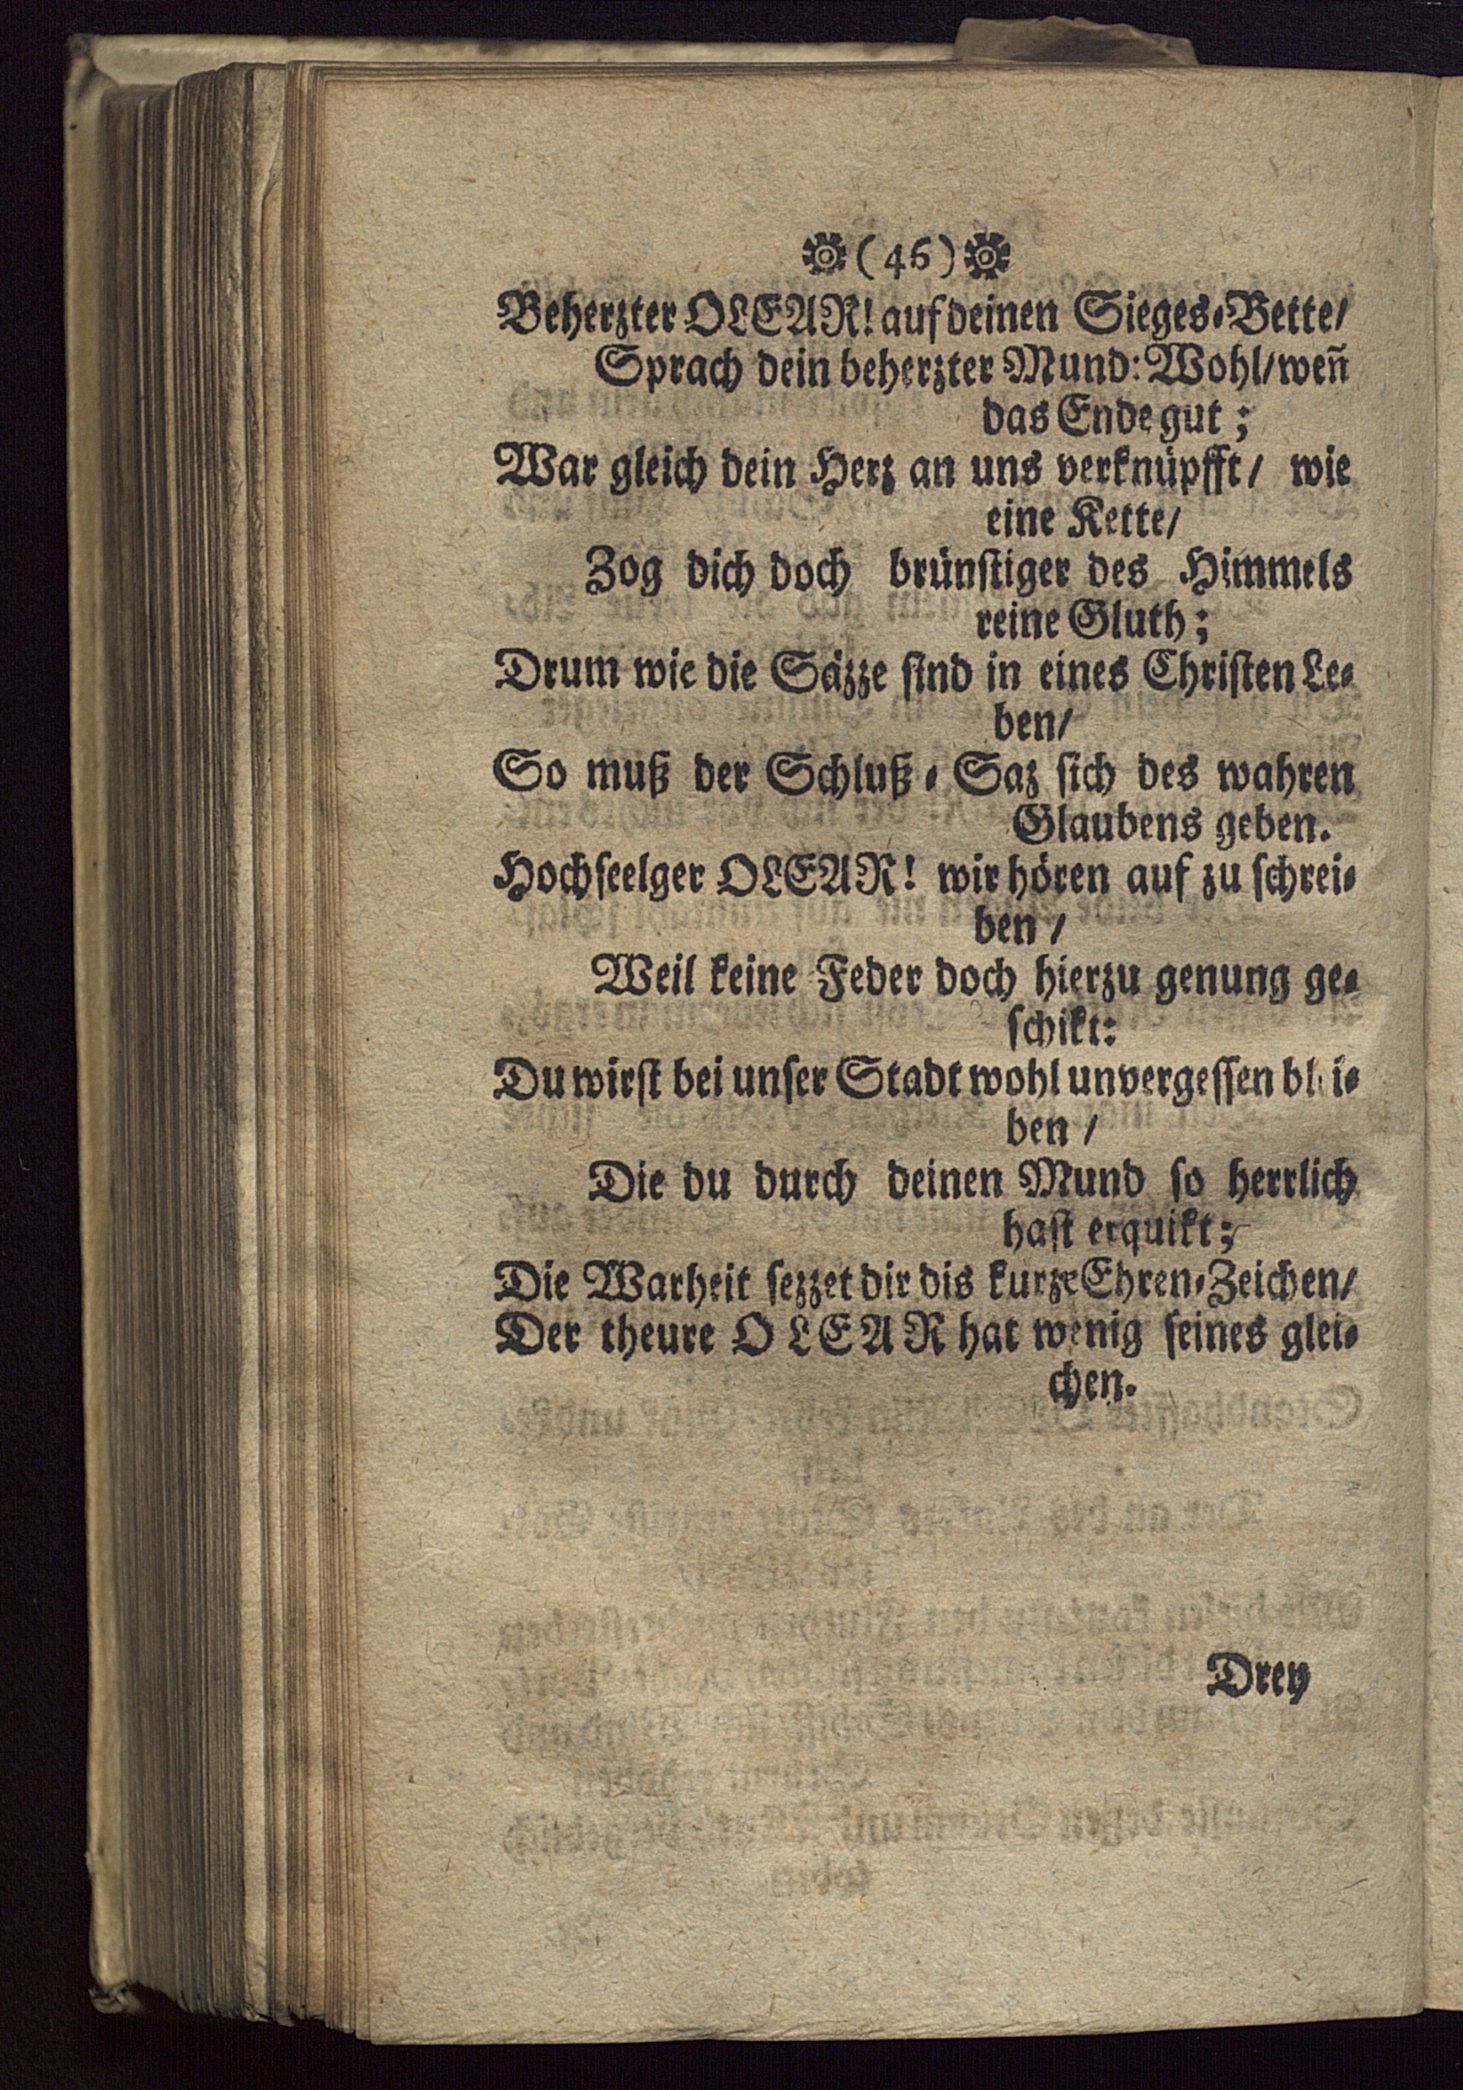 (46)
Beherzter OLEAR! auf deinen Sieges-Bette/
Sprach dein beherzter Mund: Wohl/ weñ
das Ende gut;
War gleich dein Herz an uns verknüpfft/ wie
eine Kette/
Zog dich doch brünſtiger des Himmels
reine Gluth;
Drum wie die Säzze ſind in eines Chriſten Le-
ben/
So muß der Schluß-Saz ſich des wahren
Glaubens geben.
Hochſeelger OLEAR! wir hören auf zu ſchrei-
ben/
Weil keine Feder doch hierzu genung ge-
ſchikt:
Du wirſt bei unſer Stadt wohl unvergeſſen blei-
ben/
Die du durch deinen Mund ſo herrlich
haſt erquikt;
Die Warheit ſezzet dir dis kurze Ehren-Zeichen/
Der theure OLEAR hat wenig ſeines glei-
chen.
Drey